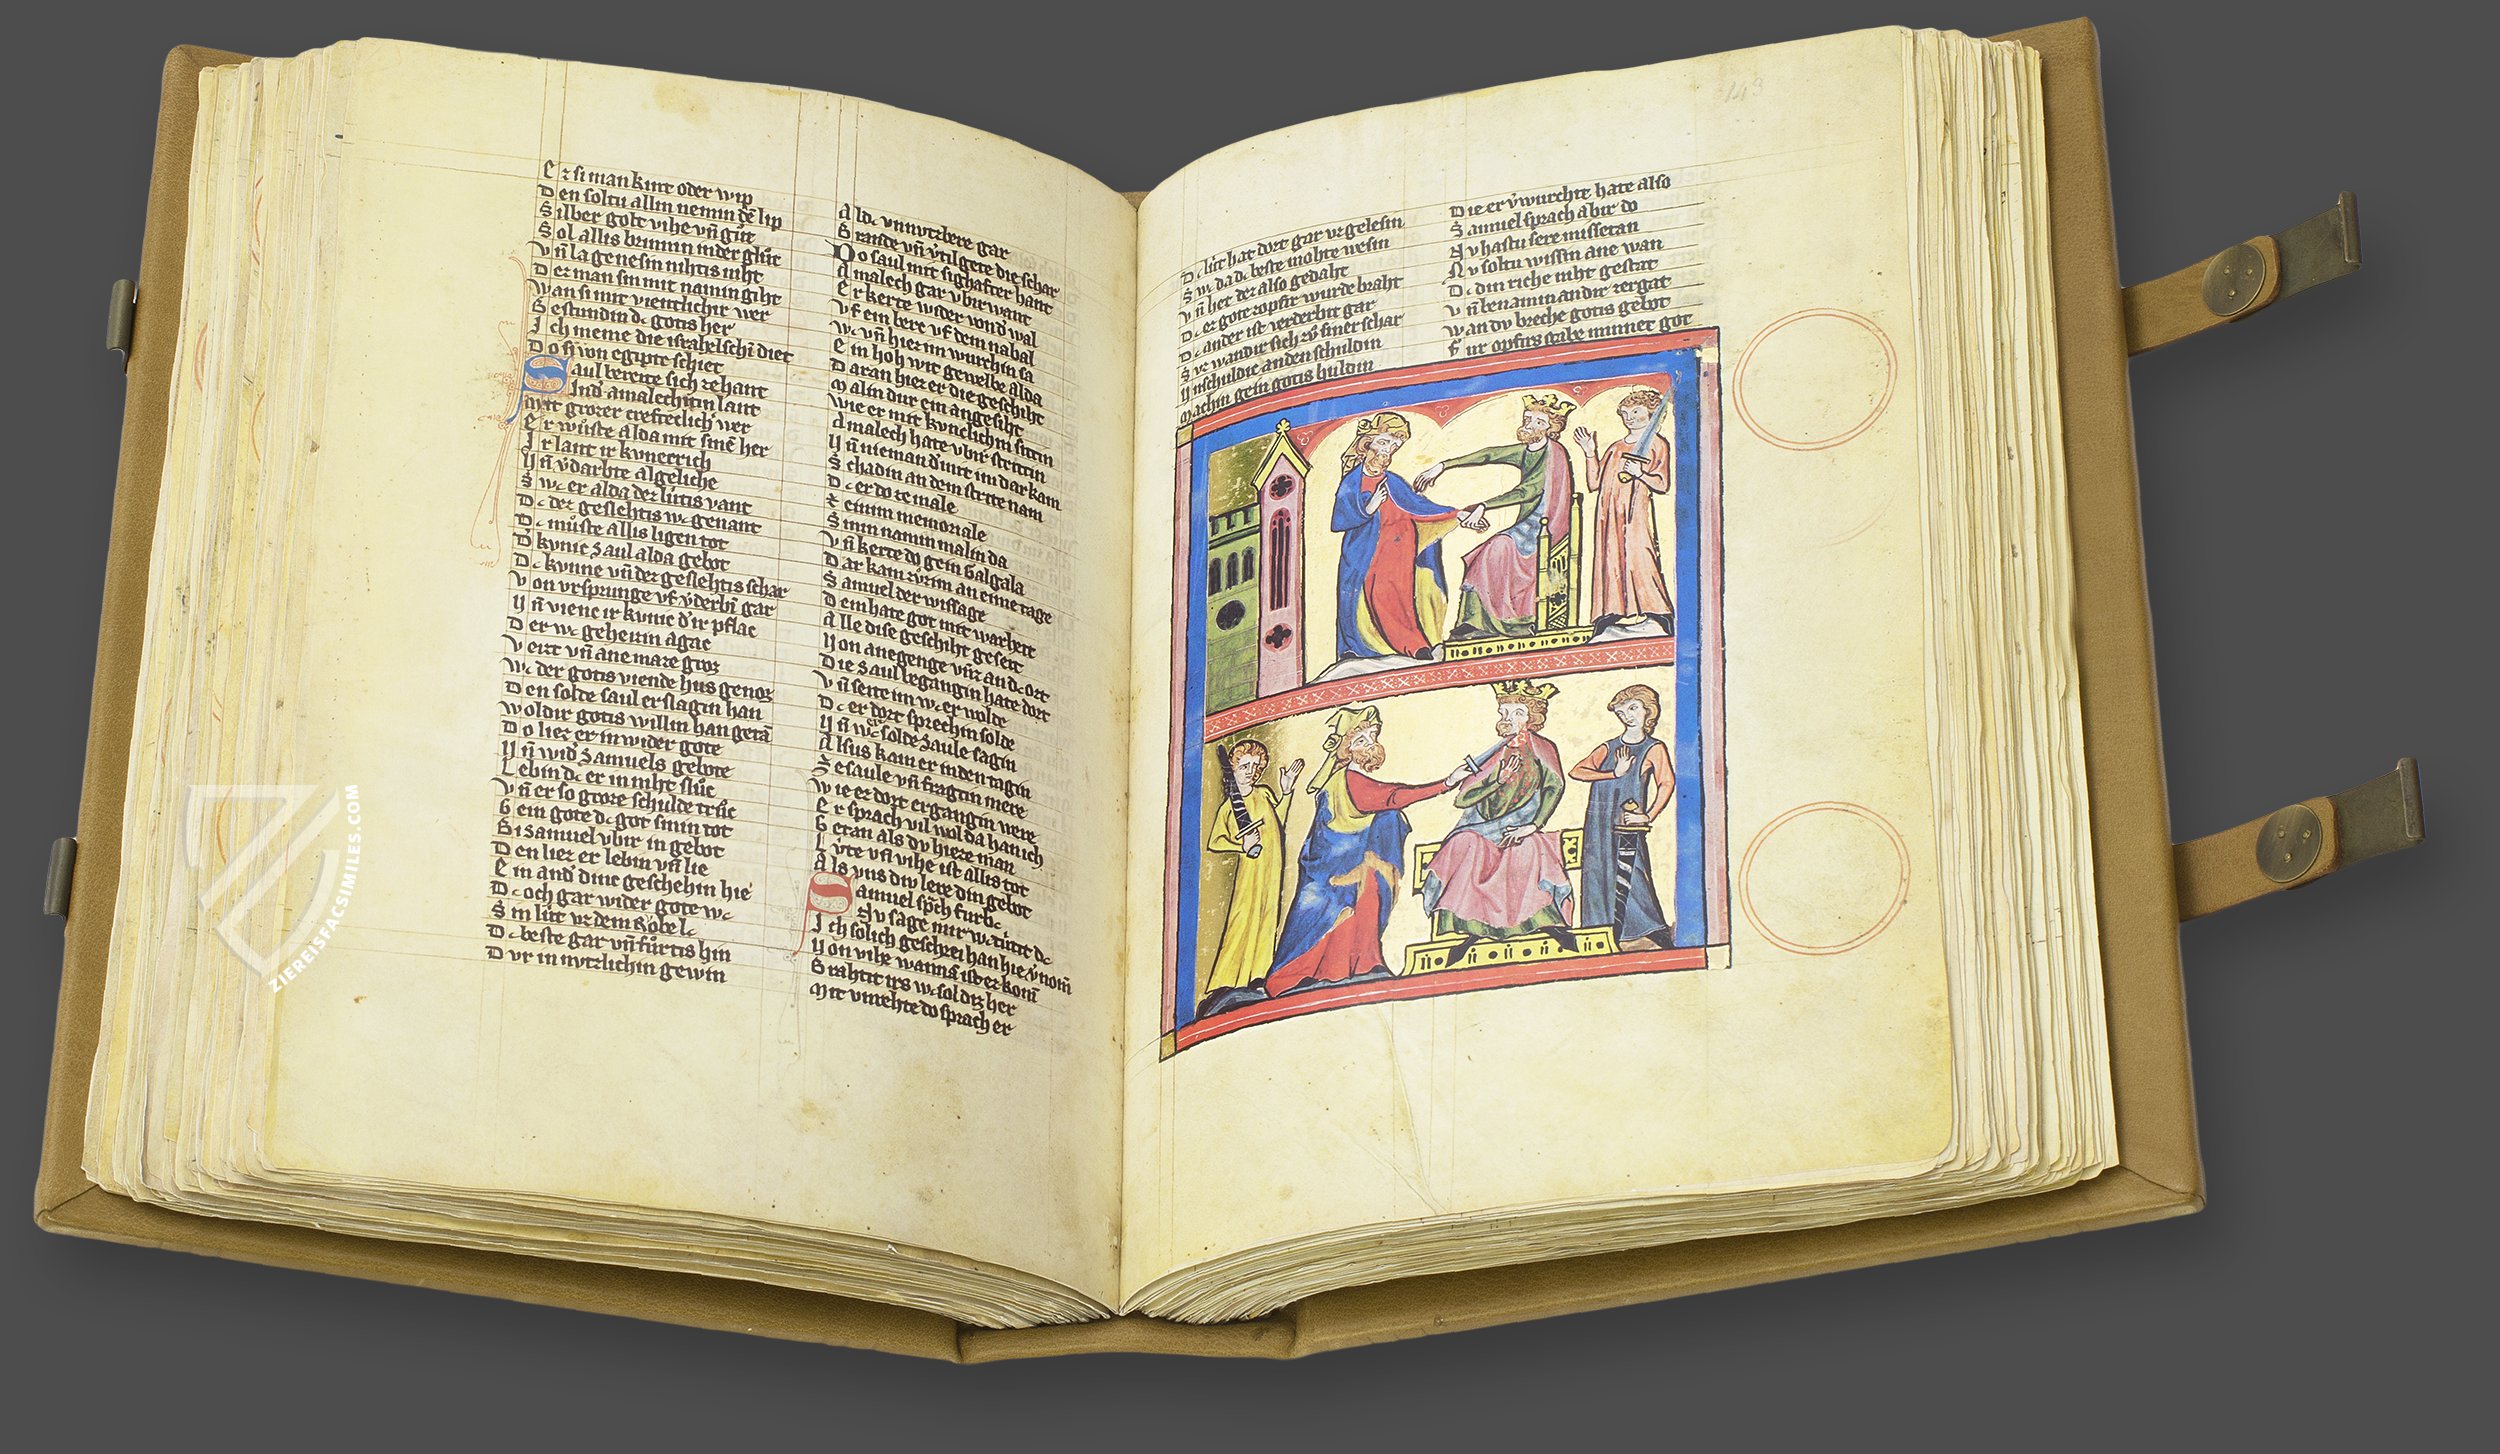 Er si man kint oder wip
Den soltu allin nemin dē lip
Silber golt vihe vn̄ gůt
Sol allis brinnin inder glůt
Vn̄ la genesin nihtis niht
Der man sin mit namin giht
Wan si mit vientlichir wer
Gestundin dc gotis her
Ich meine die israhelschī diet
Do si von egipte schiet
Saul bereite sich zehant
Ind amalechitin lant
Mit grozer creftēclich' wer
Er wůste alda mit sinē her
Ir lant ir kvnecrich
Vn̄ v'darbte algeliche
Swc er alda der lůtis vant
Dc der geslehtis wc genant
Dc můste allis ligen tot
D' kvnic Saul alda gebot
Dc kvnne vn̄ der geslehtis schar
Von vrsprunge vf v'derbī gar
Vn̄ vienc ir kvnic d' ir pflac
Der wc geheizin agac
Veizt vn̄ ane maze groz
Wc der gotis viende hus genoz
Den solde saul erslagin han
Woldir gotis willin han getā
Do liez er in wider gote
Vn̄ wid' Samuels gebote
Lebin dc er in niht slůc
Vn̄ er so groze schulde trůc
Gein gote dc got sinin tot
Bi Samuel vbir in gebot
Den liez er lebin vn̄ lie
Ein and' dinc geschehin hie
Dc och gar wider gote wc
Sin lůt vz dem Röbe lc
Dc beste gar vn̄ fůrtis hin
Dvr in nvtzlichin gewin
Aldc vnnvtzbere gar
Brande vn̄ v'tilgete die schar
Do saul mit sighafter hant
Amalech gar vbirwant
Er kerte wider vond wal
Vf ein berc vf dem nabal
Wc vn̄ hiez im wurchin sa
Ein hoh wit gewelbe alda
Daran hiez er die geschiht
Malin dur ein angesiht
Wie er mit kvnclichin sittin
Amalech hate vbir strittin
Vn̄ nieman d' mit im dar kam
Schadin an dem strite nam
Dc er do ze male
Zeinim memoriale
Sinin namin malin da
Vn̄ kerte do gein Galgala
Dar kam zv̊ zim an eime tage
Samuel der wissage
Dem hate got mit warheit
Alle dise geschiht geseit
Von anegenge vnz an dc ort
Die Saul begangin hate dort
Vn̄ seite im wc er wolde
Dc er dort sprechin solde
Vn̄ wc er solde Saule sagin
Alsus kam er inden tagin
Ze saule vn̄ fragtin mere
Wie ez dort ergangin were
Er sprach vil wol da han ich
Getan als dv hieze man
Lvte vn̄ vihe ist allis tot
Als vns div lere din gebot
Samuel sp̄ch furbc
Nv sage mir wc tůtit dc
Ich solich geschrei han hie v'nom̄
Von vihe wannā ist ez kom̄
Brahtit irs wc soldiz her
Mit vnrehte do sprach er
143
Dc lůt hat dort gar vz gelesin
Swc da dc beste mohte wesin
Vn̄ her dez also gedaht
Dc ez gote zopfir wurde braht
Dc ander ist verderbit gar
Svz wandir sich zů siner schar
Vnschuldic anden schuldin
Machin gein gotis huldin
Die er v'wurchte hate also
Samuel sprach abir do
Nv hastu sere missetan
Nv soltu wissin ane wan
Dc din riche niht gestat
Vn̄ benamin andir zergat
Wan dv breche gotis gebot
Fur opfirs gabe minnet got
ZIEREISFACSIMILES.COM